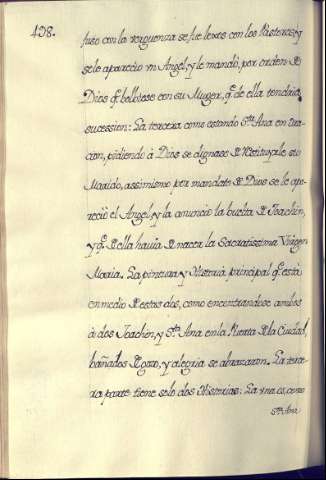 198.
fuso con la verguenza se fue lexos con los Pastores, y
se le aparecio vn Angel, y le mandò, por orden de
Dios q̃ bolviese con su Muger, q̃ de ella tendria
sucession: La tercera como estando Sta. Ana en Ora-
cion, pidiendo à Dios se dignase de restituyrle su
Marido, assimismo por mandato de Dios se le apa-
reciò el Angel, y la anuncio la buelta de Joachin,
y q̃ de ella havia de nacer la Sacratissima Virgen
Maria. La pintura y Historia principal q̃ està
en medio de estas dos, como encontrandose ambos
à dos Joachin, y Sta. Ana en la Puerta de la Ciudad,
bañados de gozo, y alegria se abrazaron. La terce-
ra parte tiene solo dos Historias: La vna es, como
Sta. Ana